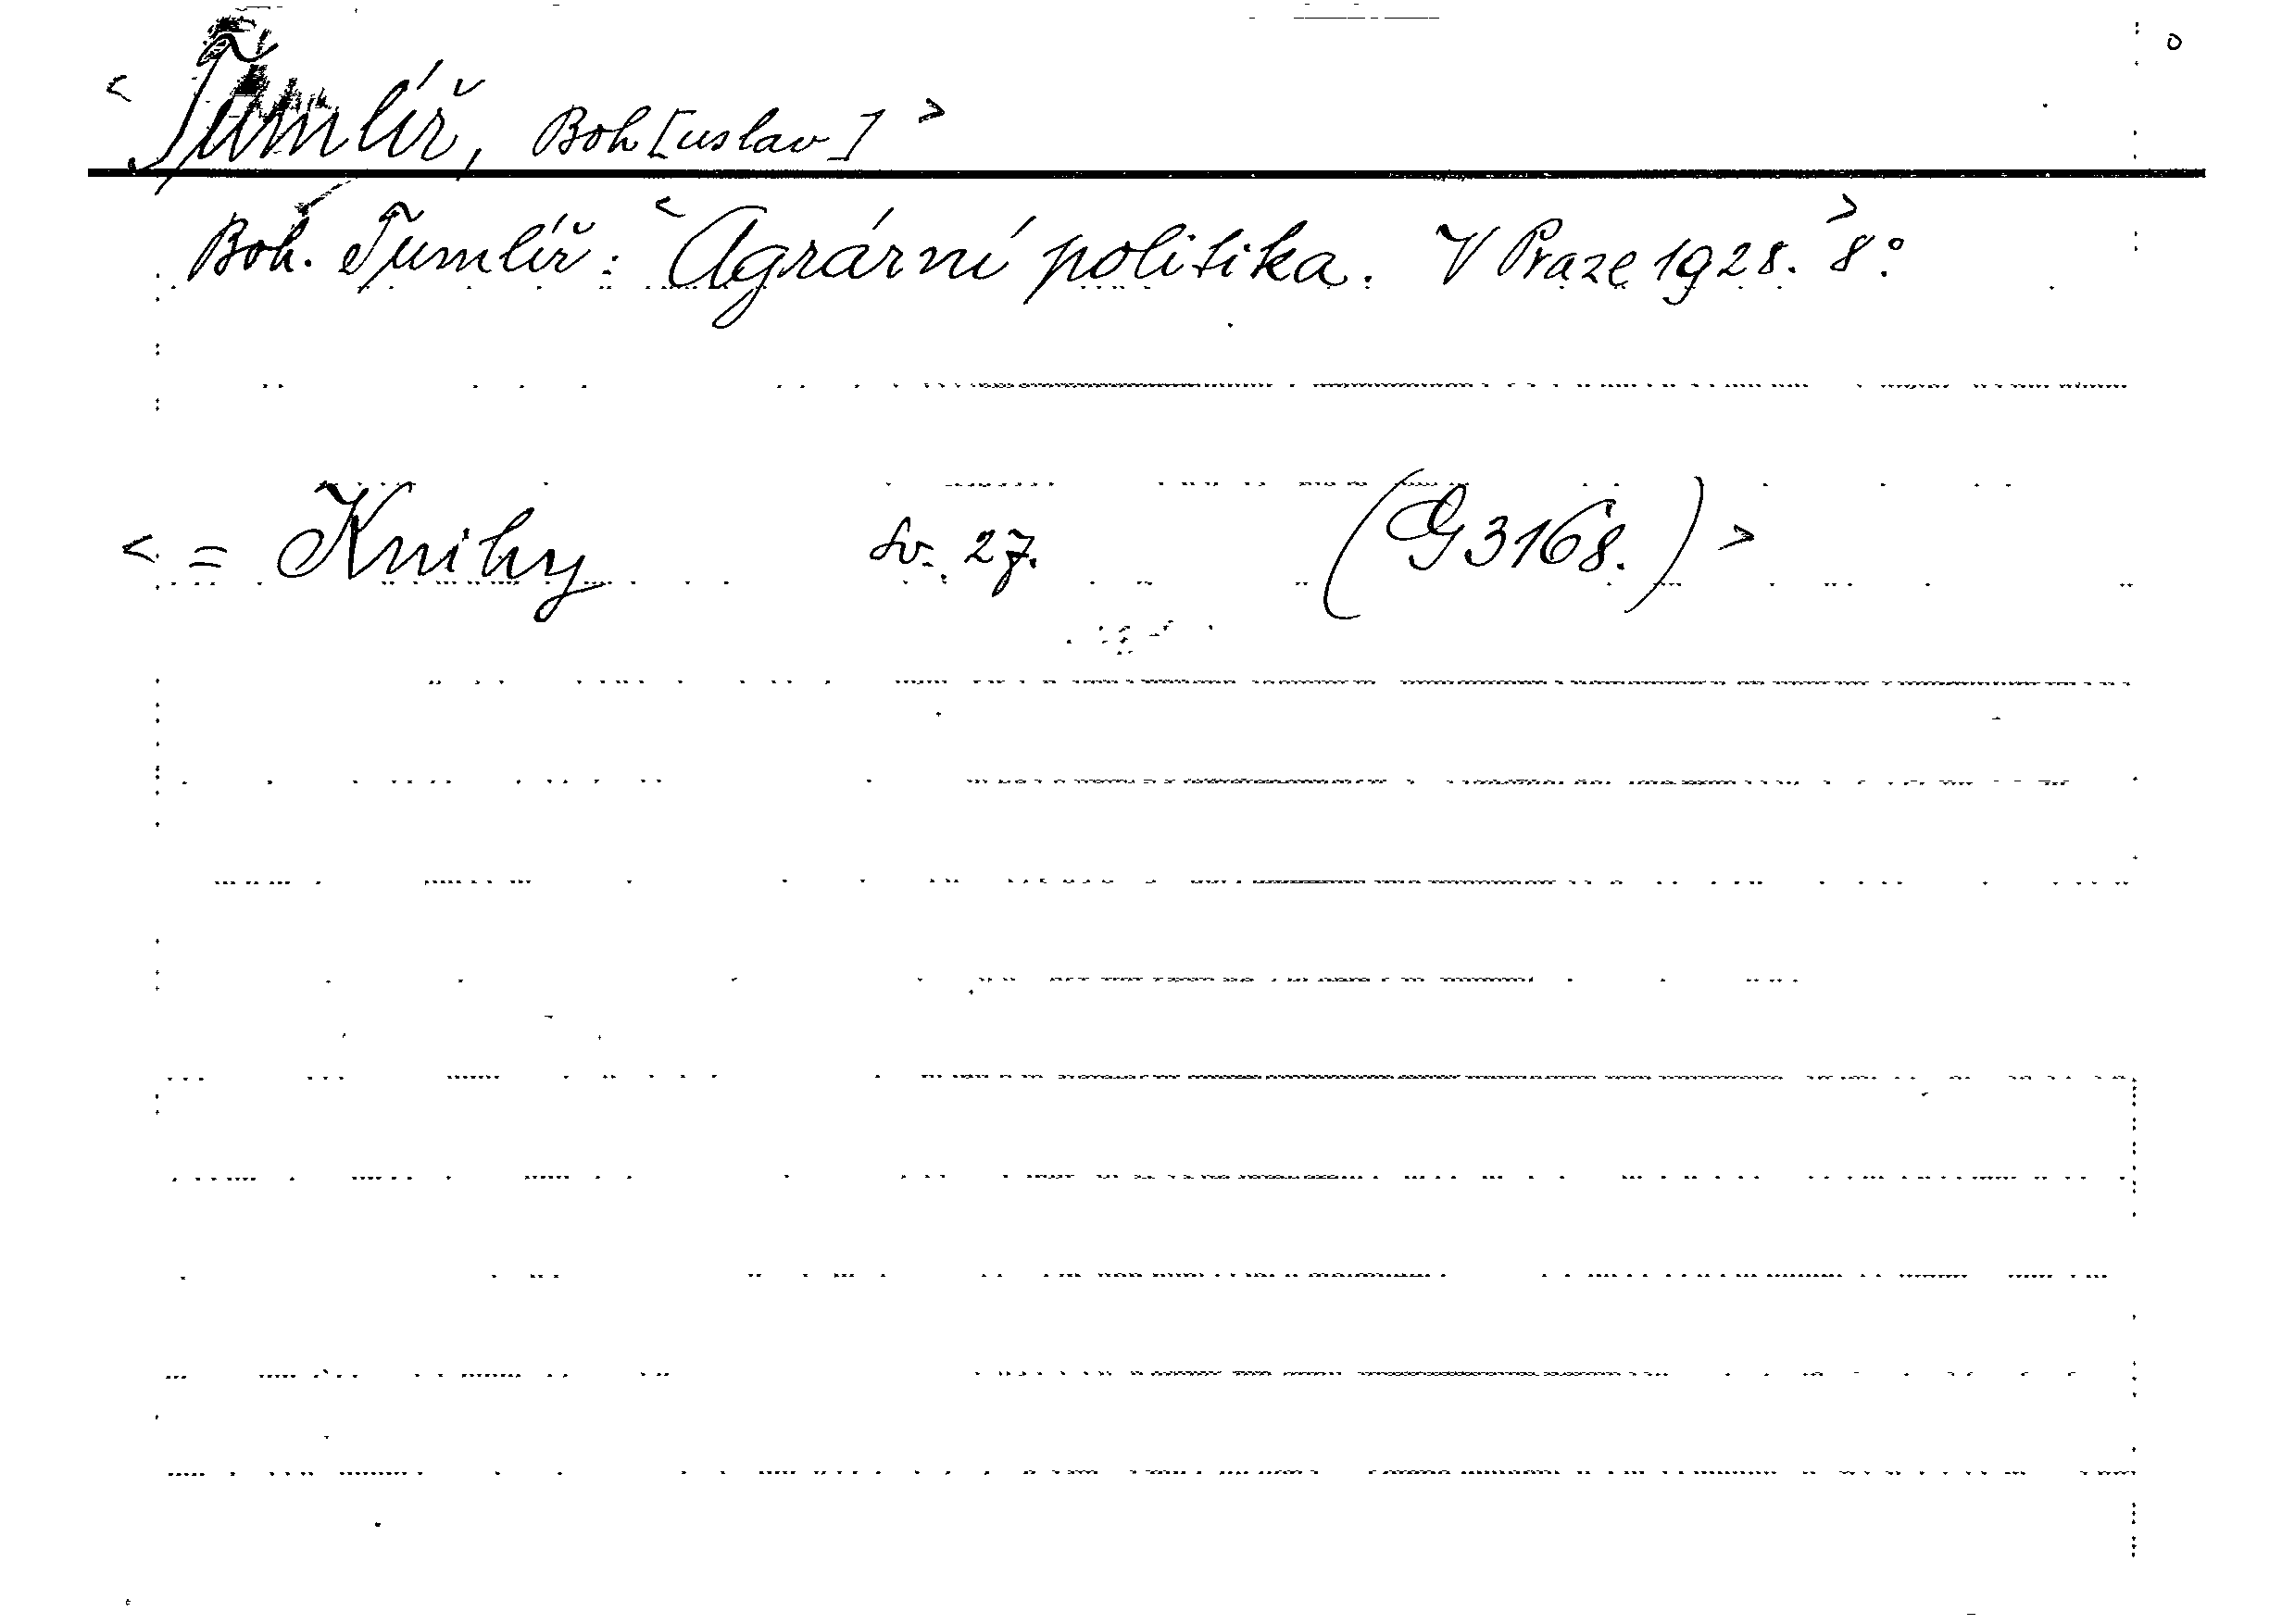 < Tumlíř, Boh[uslav] >
Boh. Tumlíř: < Agrární politika. V Praze 1928. > 8°
< = Knihy sv. 27. (G 3168.) >